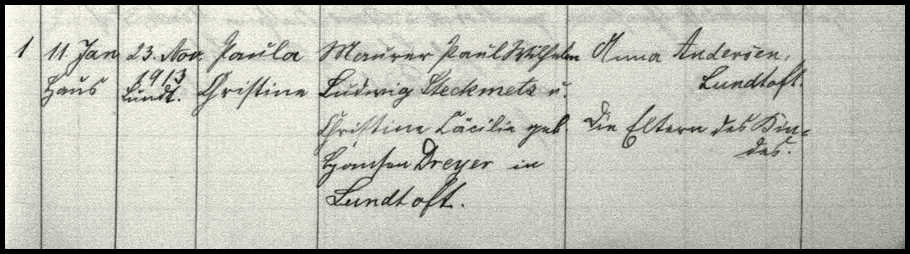 1
11 Jan
Haus
23. Nov.
1913
Lundt.
Paula
Christine
Maurer Paul Wilhelm
Ludwig Steckmetz u.
Christine Cäcilie geb.
Dreyer in
Lundtoft.
Anna Andersen,
Lundtoft.
Die Eltern des Kin=
des.